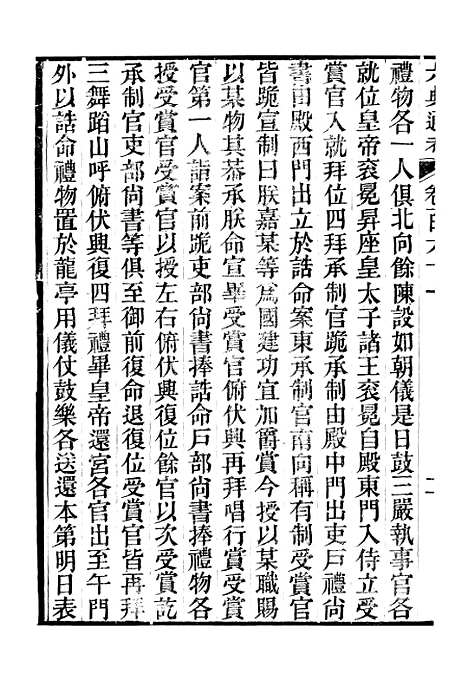 六典通考 卷百六十一
禮物各一人俱北向餘陳設如朝儀是日鼓三嚴執事官各
就位皇帝衮冕昇座皇太子諸王衮冕自殿東門入侍立受
賞官入就拜位四拜承制官跪承制由殿中門出吏戶禮尚
書由殿西門出立於誥命案東承制官南向稱有制受賞官
皆跪宣制曰朕嘉某等爲國建功宜加爵賞今授以某職賜
以某物其恭承朕命宣畢受賞官俯伏興再拜唱行賞受賞
官第一人詣案前跪吏部尚書捧誥命戶部尚書捧禮物各
授受賞官受賞官以授左右俯伏興復位餘官以次受賞訖
承制官吏部尚書等俱至御前復命退復位受賞官皆再拜
三舞蹈山呼俯伏興復四拜禮畢皇帝還宮各官出至午門
外以誥命禮物置於龍亭用儀仗鼓樂各送還本第明日表